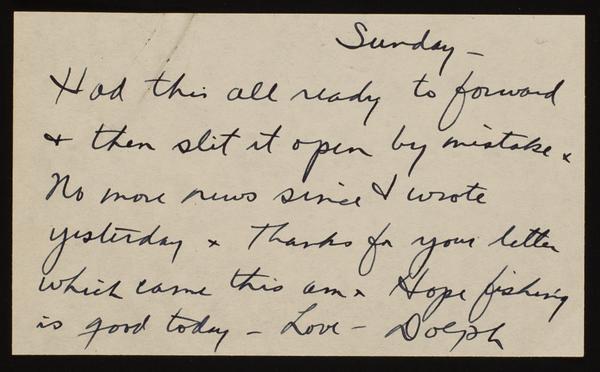 Sunday -
Had this all ready to forward
+ then slit it open by mistake x
No more news since I wrote
yesterday x Thanks for your letter
which came this am x Hope fishing
is good today - Love - Dolph